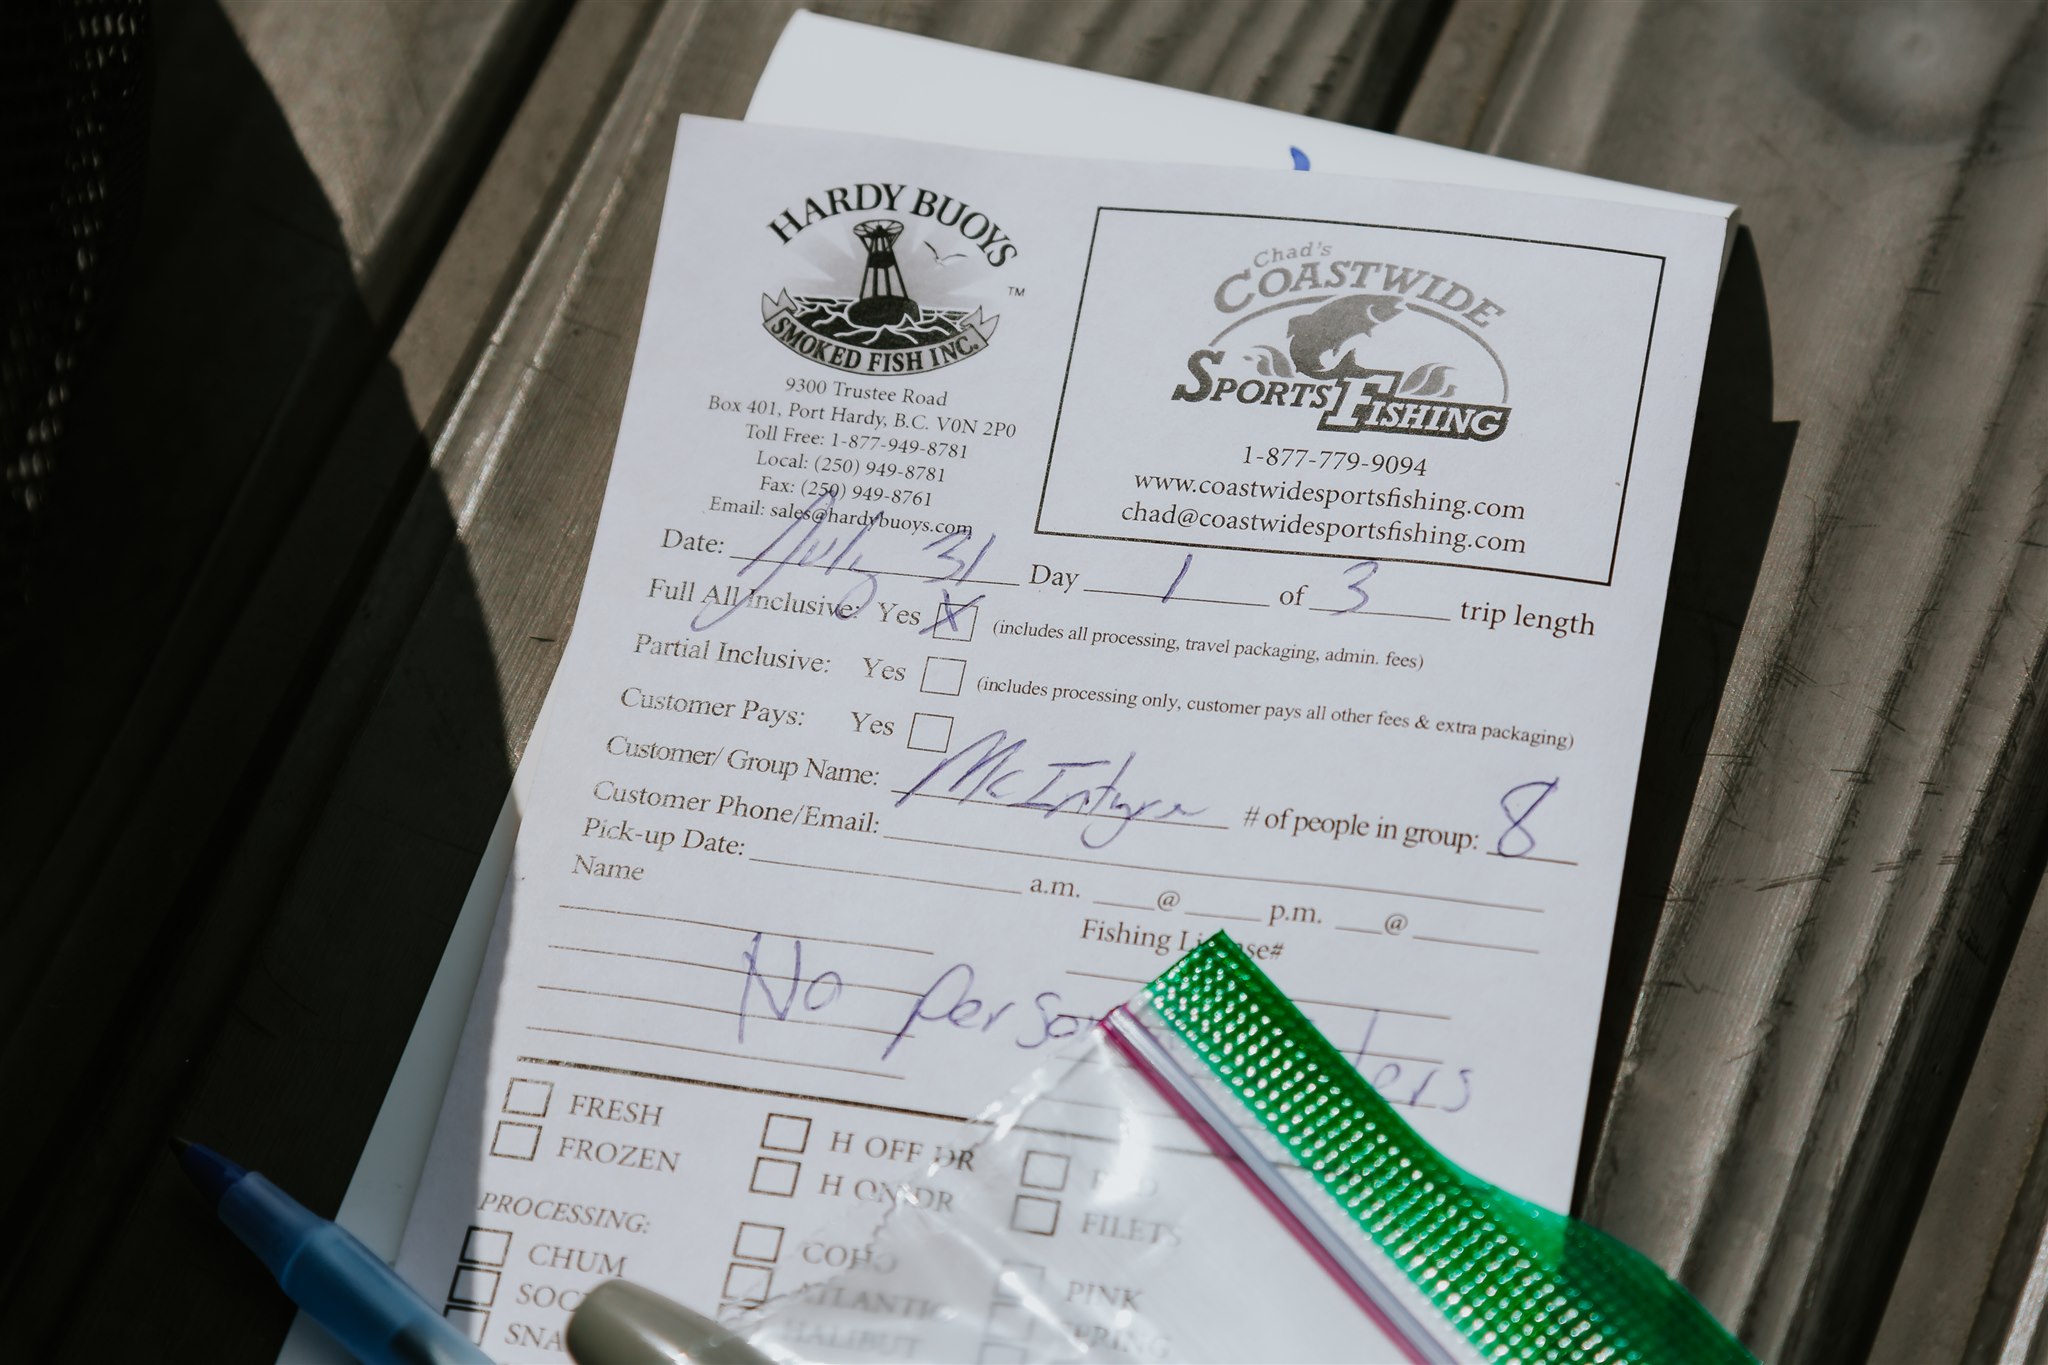 HARDY BUOYS
TM
SMOKED FISH INC.
9300 Trustee Road
Box 401, Port Hardy, B.C. V0N 2P0
Toll Free: 1-877-949-8781
Local: (250) 949-8781
Fax: (250) 949-8761
Email: sales@hardybuoys.com
Chad's
COASTWIDE
SPORTSFISHING
1-877-779-9094
www.coastwidesportsfishing.com
chad@coastwidesportsfishing.com
Date: July 31 Day 1 of 3 trip length
Full All Inclusive: Yes X (includes all processing, travel packaging, admin. fees)
Partial Inclusive: Yes (includes processing only, customer pays all other fees & extra packaging)
Customer Pays: Yes
Customer/ Group Name: McIntyre # of people in group: 8
Customer Phone/Email:
Pick-up Date: a.m. @ p.m. @
Name Fishing #
No
FRESH H OFF DR
FROZEN H ON DR FILETS
PROCESSING:
CHUM COHO PINK
ATLANTIC SPRING
HALIBUT